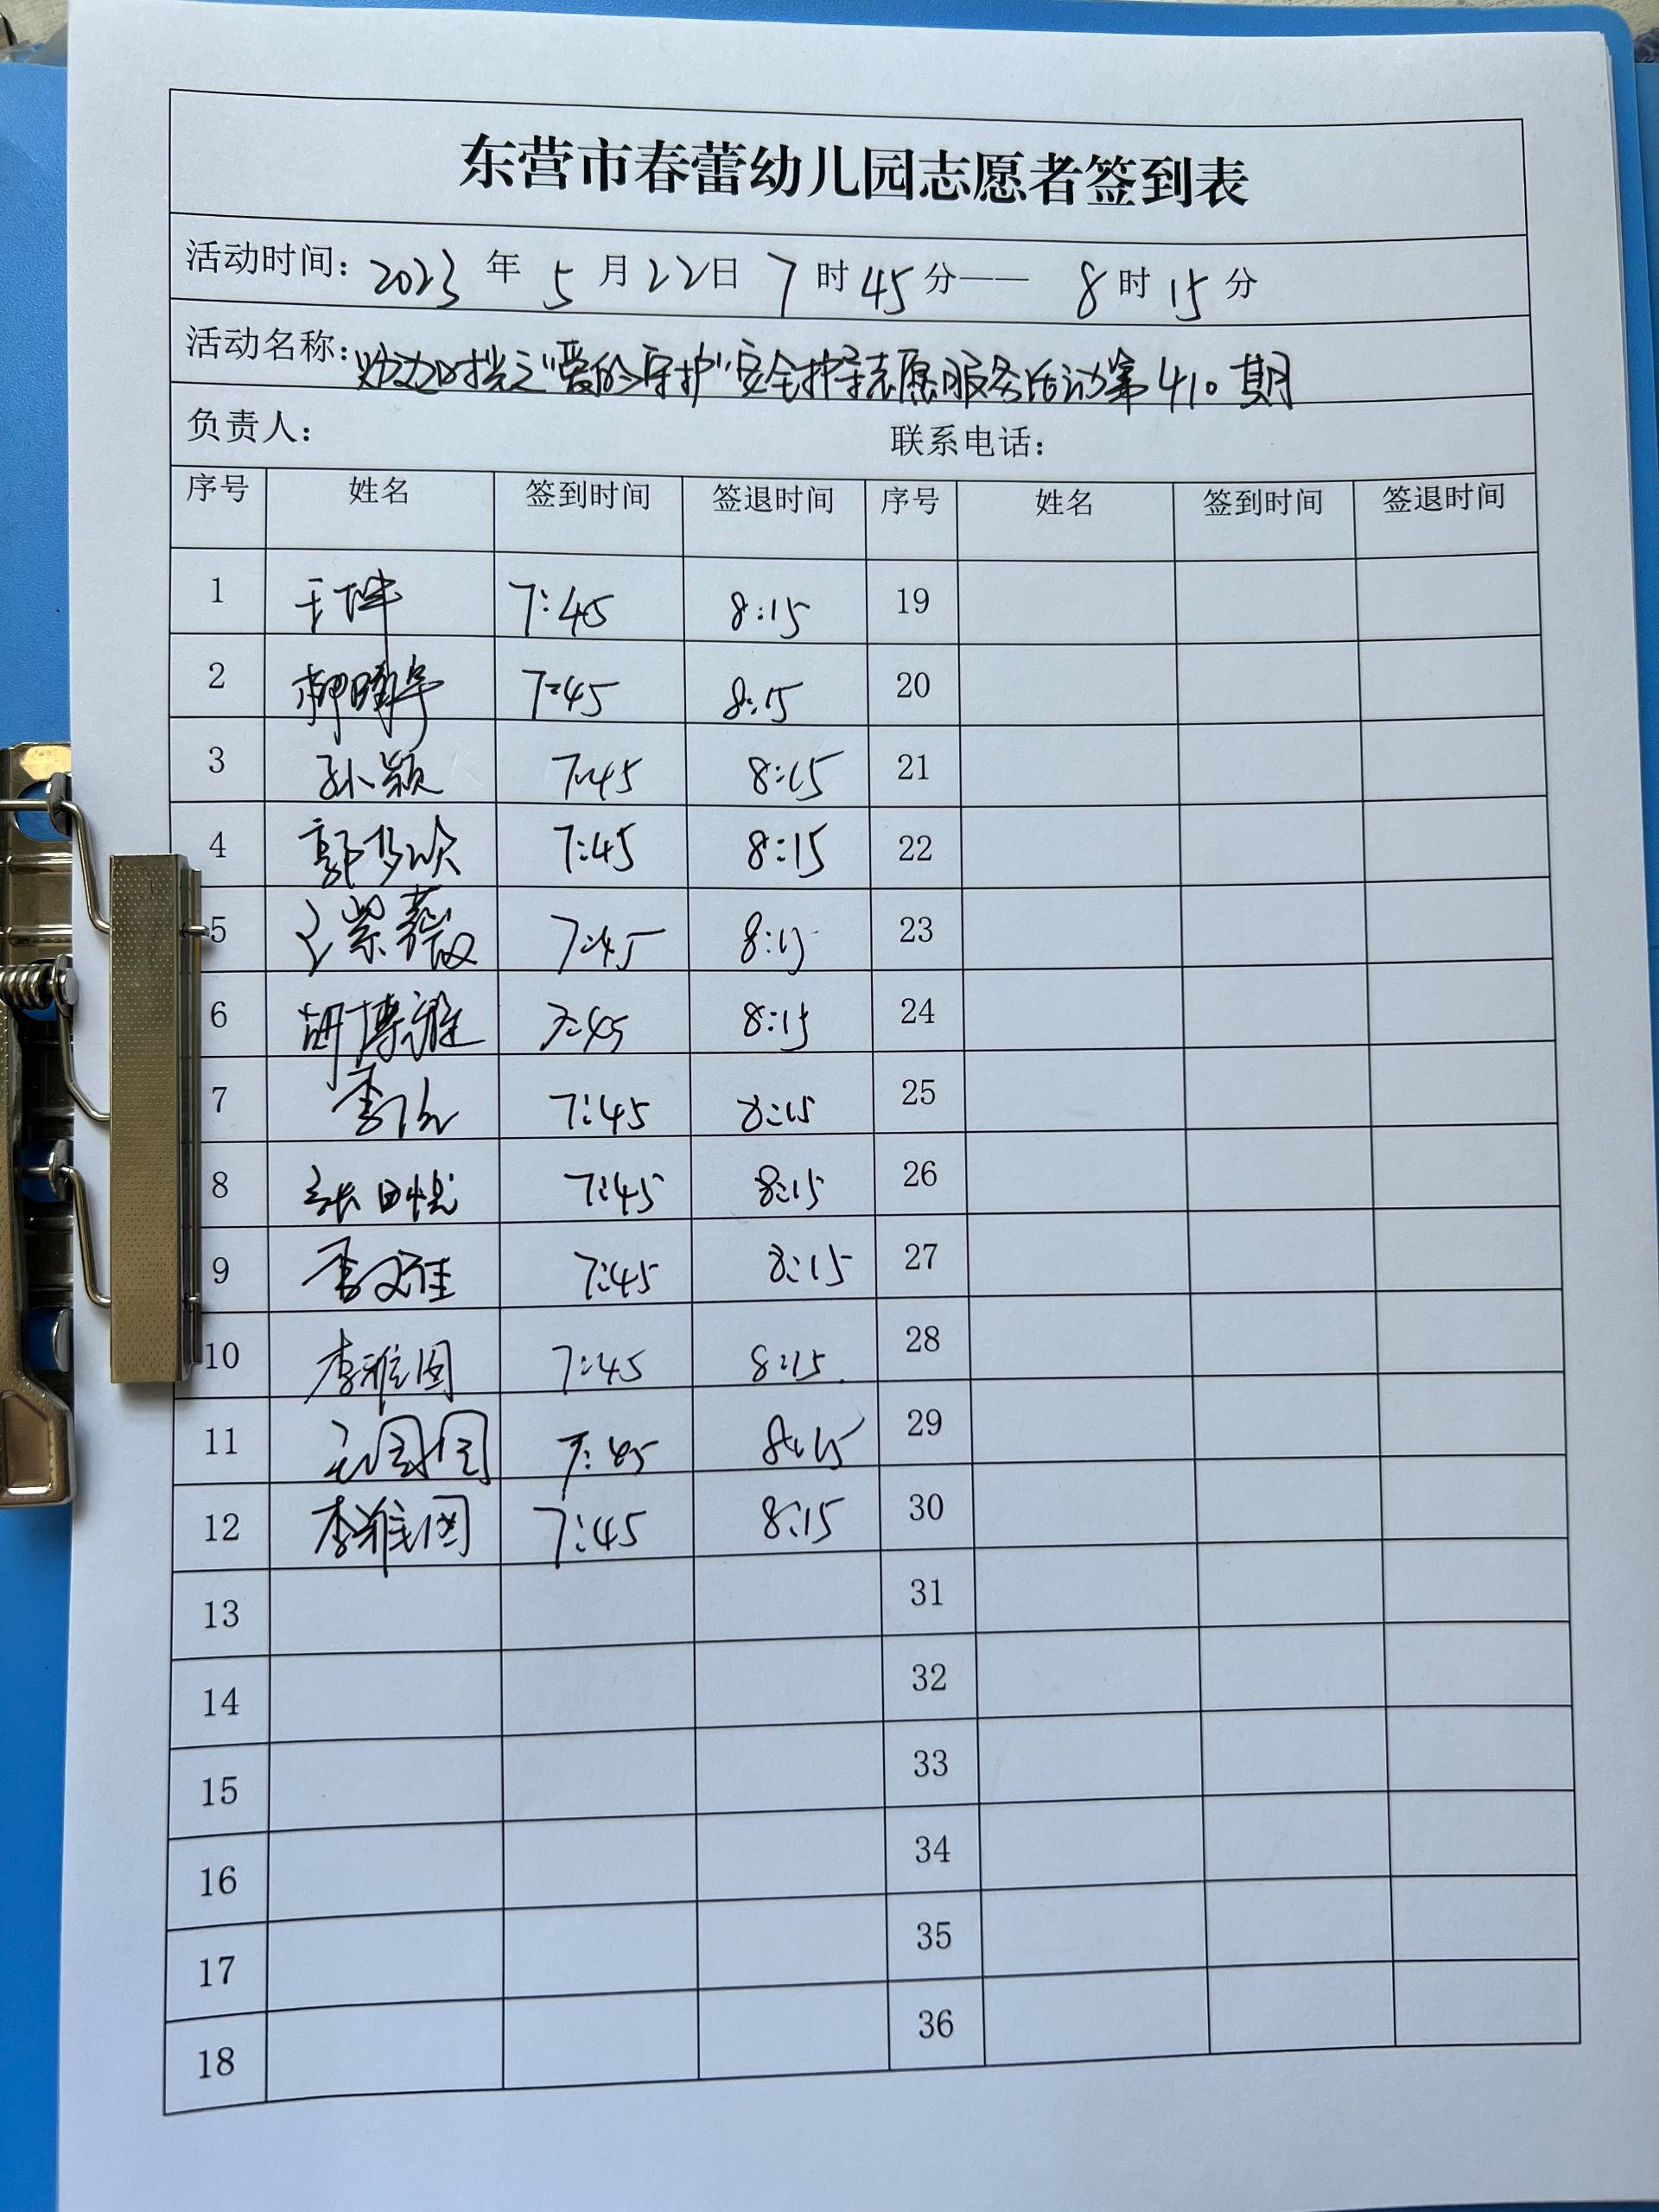 东营市春蕾幼儿园志愿者签到表
活动时间: 2023 年 5 月 22 日 7 时 45 分—— 8 时 15 分
活动名称: "爱的守护"安全护导志愿服务活动第410期
负责人: 联系电话:
序号 姓名 签到时间 签退时间 序号 姓名 签到时间 签退时间
1 7:45 8:15 19
2 7:45 8:15 20
3 孙颖 7:45 8:15 21
4 郭梦欣 7:45 8:15 22
5 王紫薇 7:45 8:15 23
6 胡博雅 7:45 8:15 24
7 李 7:45 8:15 25
8 张田悦 7:45 8:15 26
9 李文佳 7:45 8:15 27
10 李雅图 7:45 8:15 28
11 7:45 8:15 29
12 李雅图 7:45 8:15 30
13 31
14 32
15 33
16 34
17 35
18 36